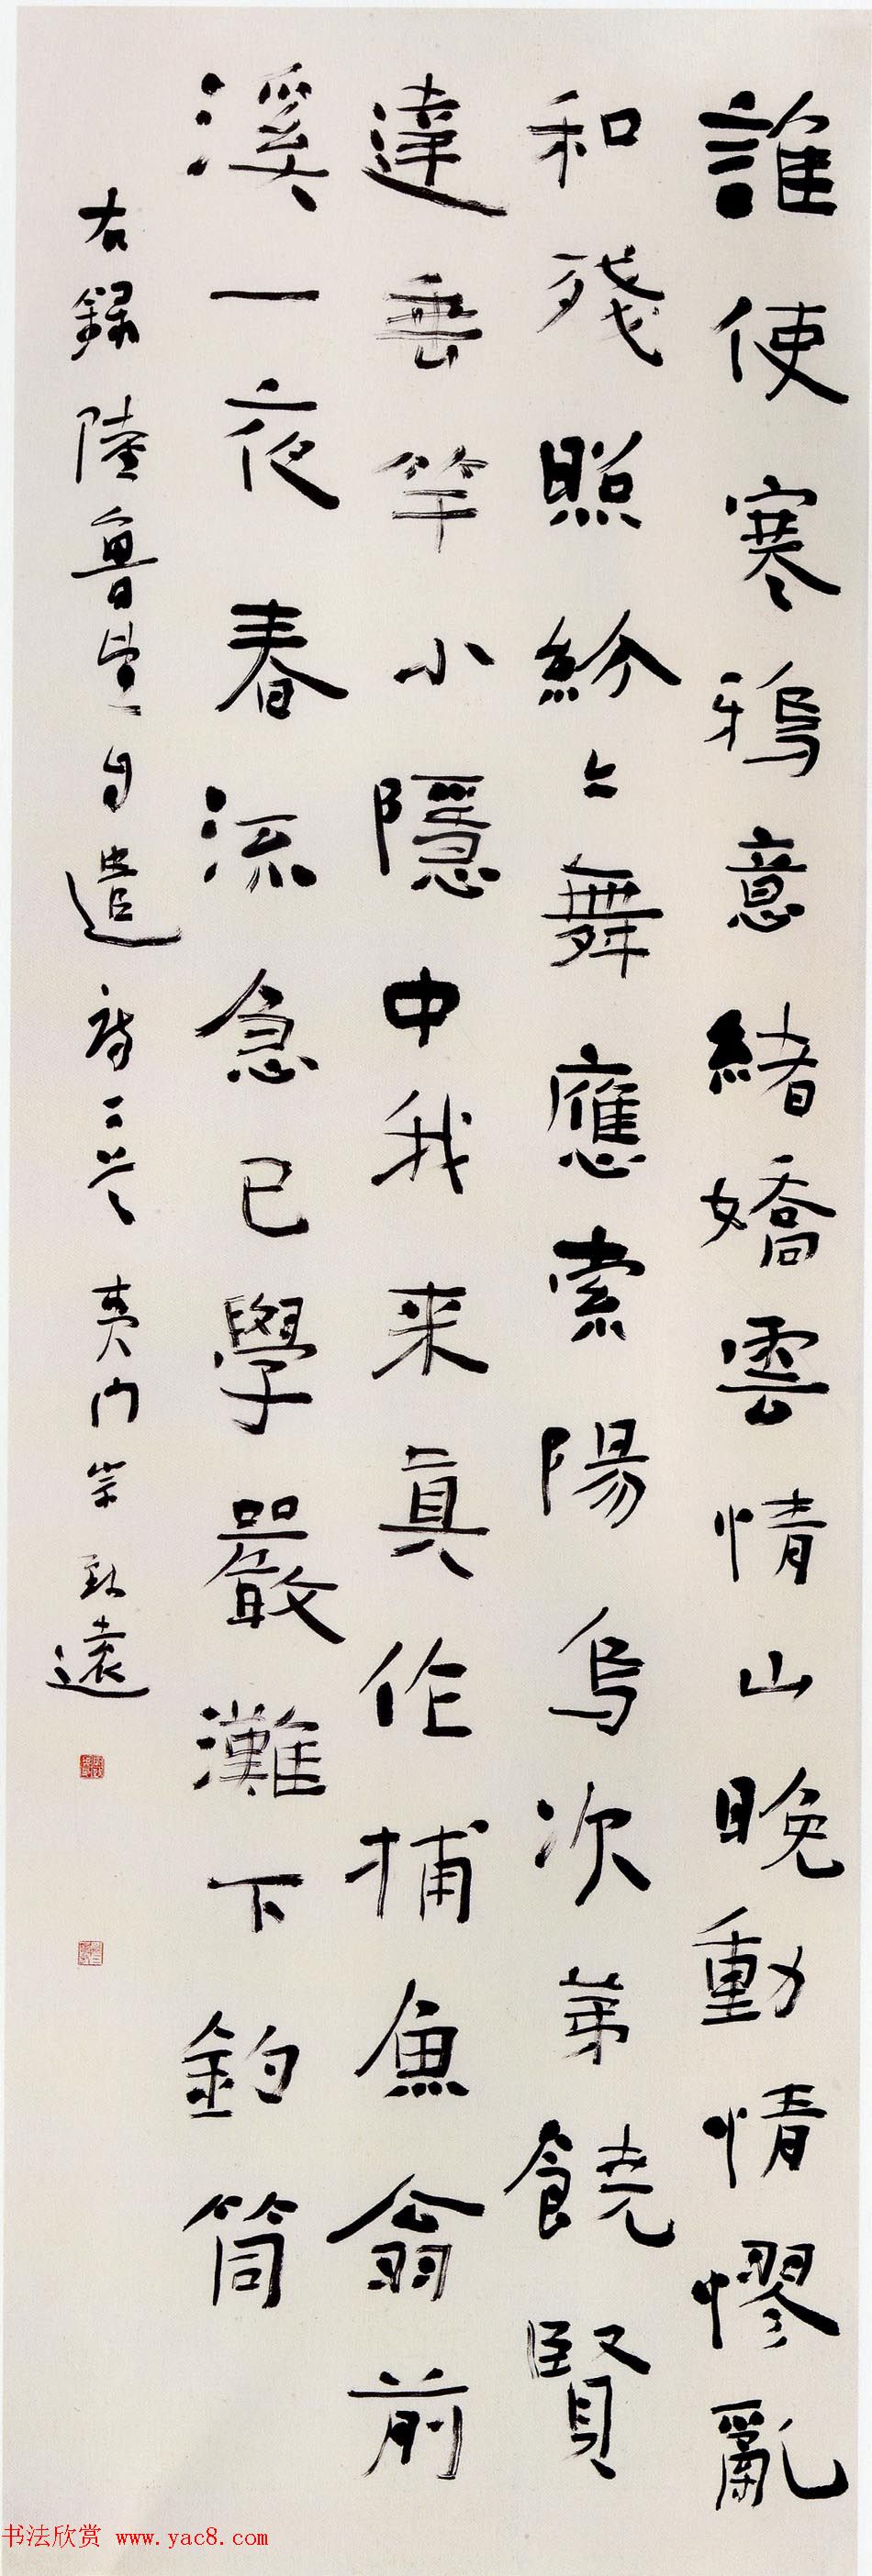 誰使寒鴉意緒嬌雲情山晚動情憀亂
和殘照紛〻舞應索陽烏次苐饒賢
達垂竿小隱中我来真作捕魚翁前
溪一夜春流急已學嚴灘下釣筒
右錄陸魯望自遣詩二首 夷門宗致遠
书法欣赏 www.yac8.com